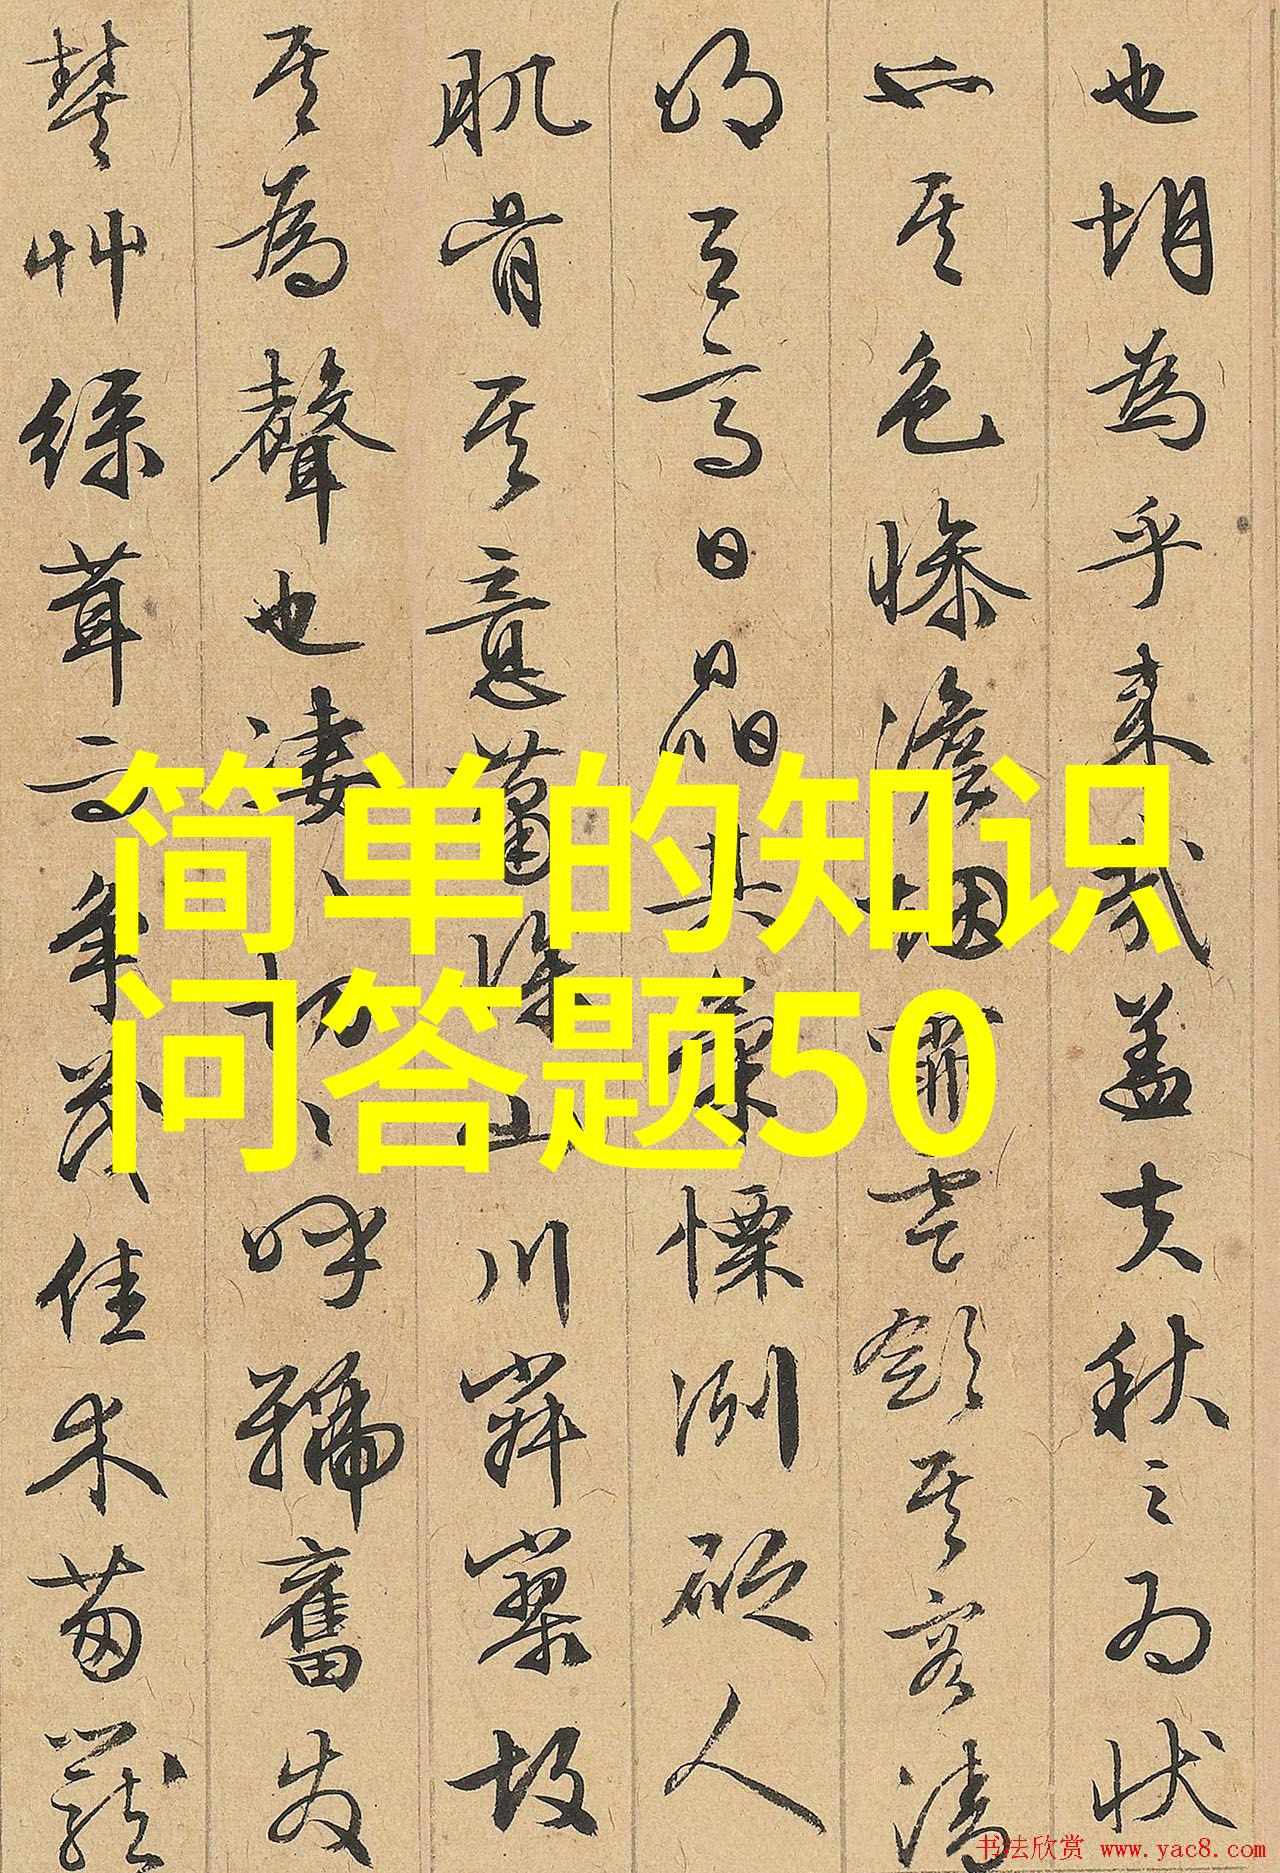 也胡為乎来哉盖夫秋之為状
也其色惨澹烟霏雲斂其容清
明天高日晶其氣慄冽砭人
肌骨其意蕭條山川寂寥故
其為聲也凄凄切切呼號奮發
豐艸綠茸而争茂佳木葱蘢
简单的知识
问答题50
书法欣赏 www.yac8.com